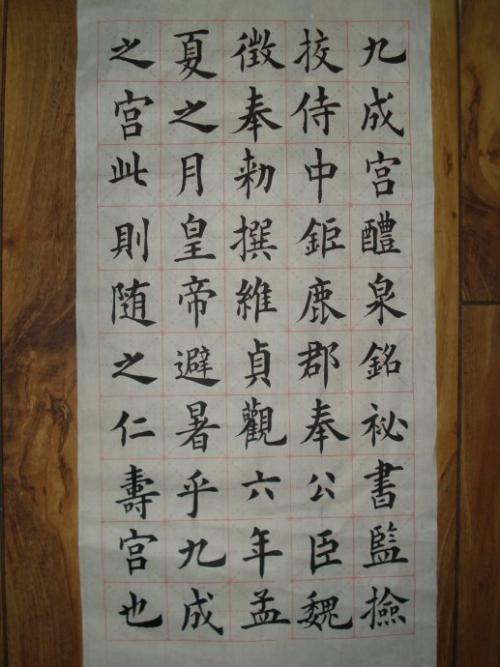 九成宮醴泉銘祕書監撿
挍侍中鉅鹿郡奉公臣魏
徵奉勑撰維貞觀六年孟
夏之月皇帝避暑乎九成
之宫此則随之仁壽宫也